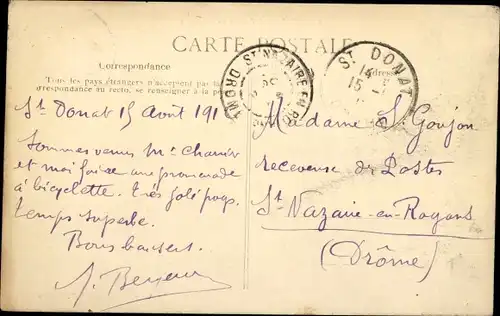 CARTE POSTALE
Correspondance
Adresse
Tous les pays étrangers n'acceptent pas la
correspondance au recto, se renseigner à la p
ST NAZAIRE EN RO
DRÔME
ST DONAT
14
15
St Donat 15 Août 191
Sommes venus Mr
et moi faire une promenade
à bicyclette. Très joli pays.
temps superbe.
Bons baisers.
Madame L. Goujon
receveuse des Postes
St Nazaire-en-Royans
(Drôme)